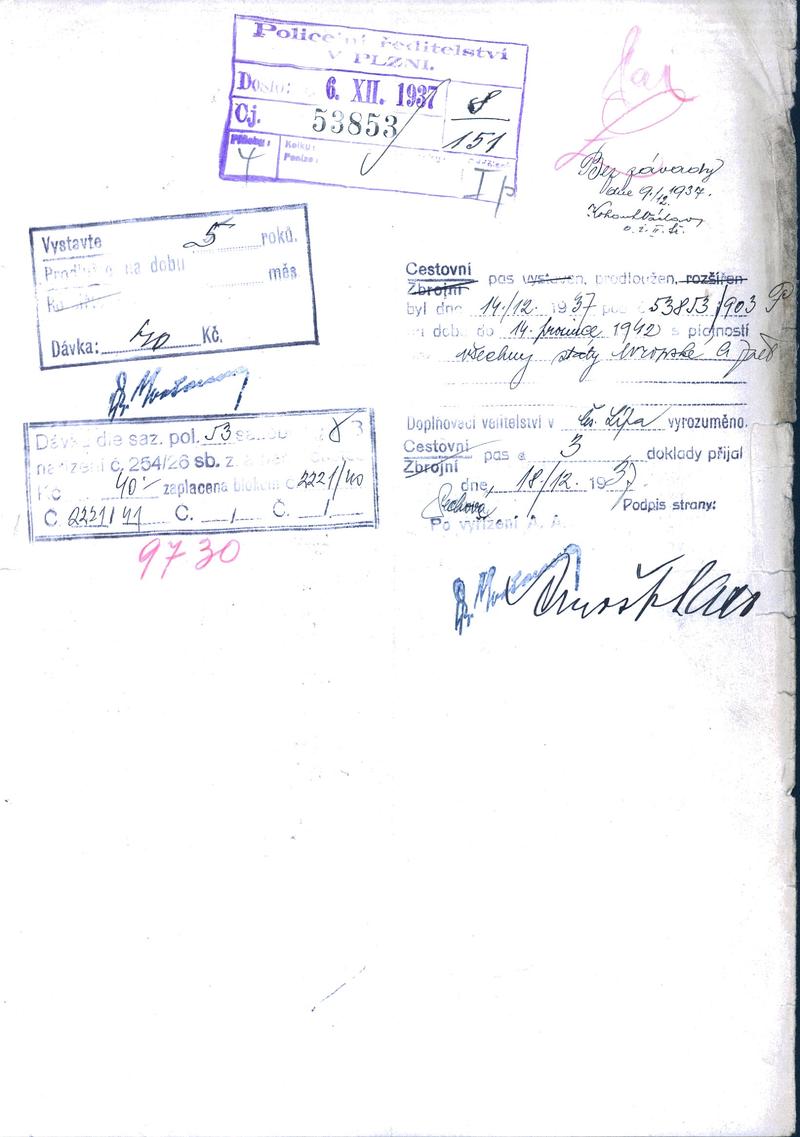 Policejní ředitelství
V PLZNI.
Došlo: 6. XII. 1937
8
Čj. 53853
151
Přílohy:
Kolky:
Peníze:
4
I/p
Bez závady
dne 9./12. 1937.
Vystavte 5 roků.
na dobu měs
Dávka: 40 Kč.
Cestovní
Zbrojní
pas vystaven, prodloužen, rozšířen
byl dne 14./12. 1937 pod č 53853/903 P
na dobu do 14. prosince 1942 s platností
všechny státy evropské
Doplňovací velitelství v Čes. Lípa vyrozuměno.
Cestovní
Zbrojní
pas a 3 doklady přijal
dne, 18./12. 1937.
Podpis strany:
Po vyřízení A. A.
Dávka dle saz. pol. 53
nařízení č. 254/26 sb. z. a
Kč 40 zaplacena blokem č 2221/40
Č. 2221/41 Č. / Č. /
9730